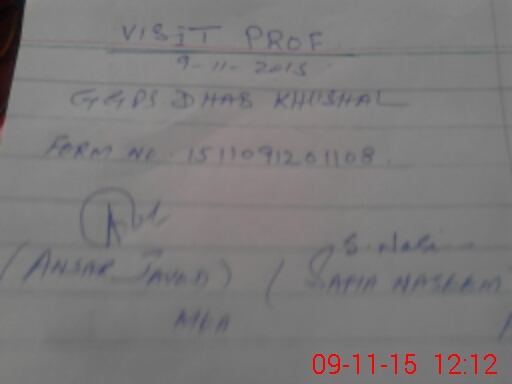 VISIT PROF.
9-11-2015
GGPS DHAB KHUSHAL
FORM NO. 1511091201108.
(ANSAR JAVED)
S. Nasi
(SAMA NASEEM
MEA
09-11-15 12:12